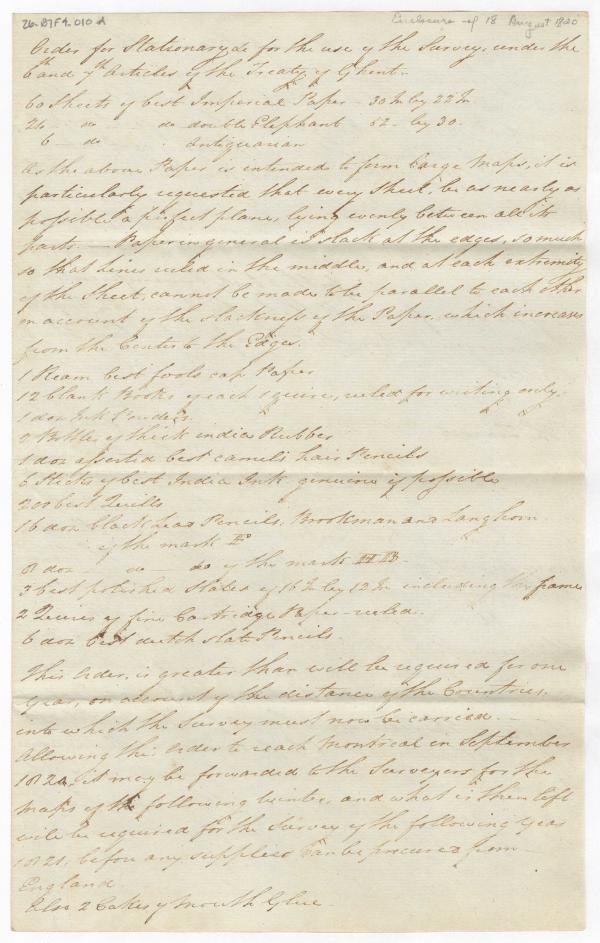 26-B7F4.010A
Enclosure of 18 August 1820
Order for Stationary &c for the use of the Survey, under the
6th and 7th Articles of the Treaty of Ghent.
60 Sheets of best Imperial Paper - 30 In by 22 In
24 - do do double Elephant 52 - by 30.
6 - do - Antiquarian
As the above Paper is intended to form large Maps, it is
particularly requested that every Sheet, be as nearly as
possible a perfect plane, lying evenly between all its
parts. - Paper in general is slack at the edges, so much
so that Lines ruled in the middle, and at each extremity
of the Sheet, cannot be made to be parallel to each other
on account of the slackness of the Paper, which increases
from the Center to the Edges.
1 Ream best fools cap Paper
12 blank Books of each 1 quire, ruled for writing only.
1 doz Ink Powder.
2 Bottles of thick india Rubber
1 doz assorted best camels hair Pencils
6 Sticks of best India Ink genuine if possible
200 best Quills
16 doz black Lead Pencils, Brookman and Langhorn
of the mark
8 doz - do - do of the mark
3 best polished Slates of 16 In by 12 In including the frame
2 Quires of fine Cartridge Paper - ruled.
6 doz best dutch slate Pencils.
This Order, is greater than will be required for one
year, on account of the distance of the Countries,
into which the Survey must now be carried. -
Allowing this order to reach Montreal in September
it may be forwarded to the Surveyors for the
Maps of the following winter, and what is then left
will be required for the Survey of the following year
1821, before any supplies can be procured from
England
Also 2 Cakes of Mouth Glue.